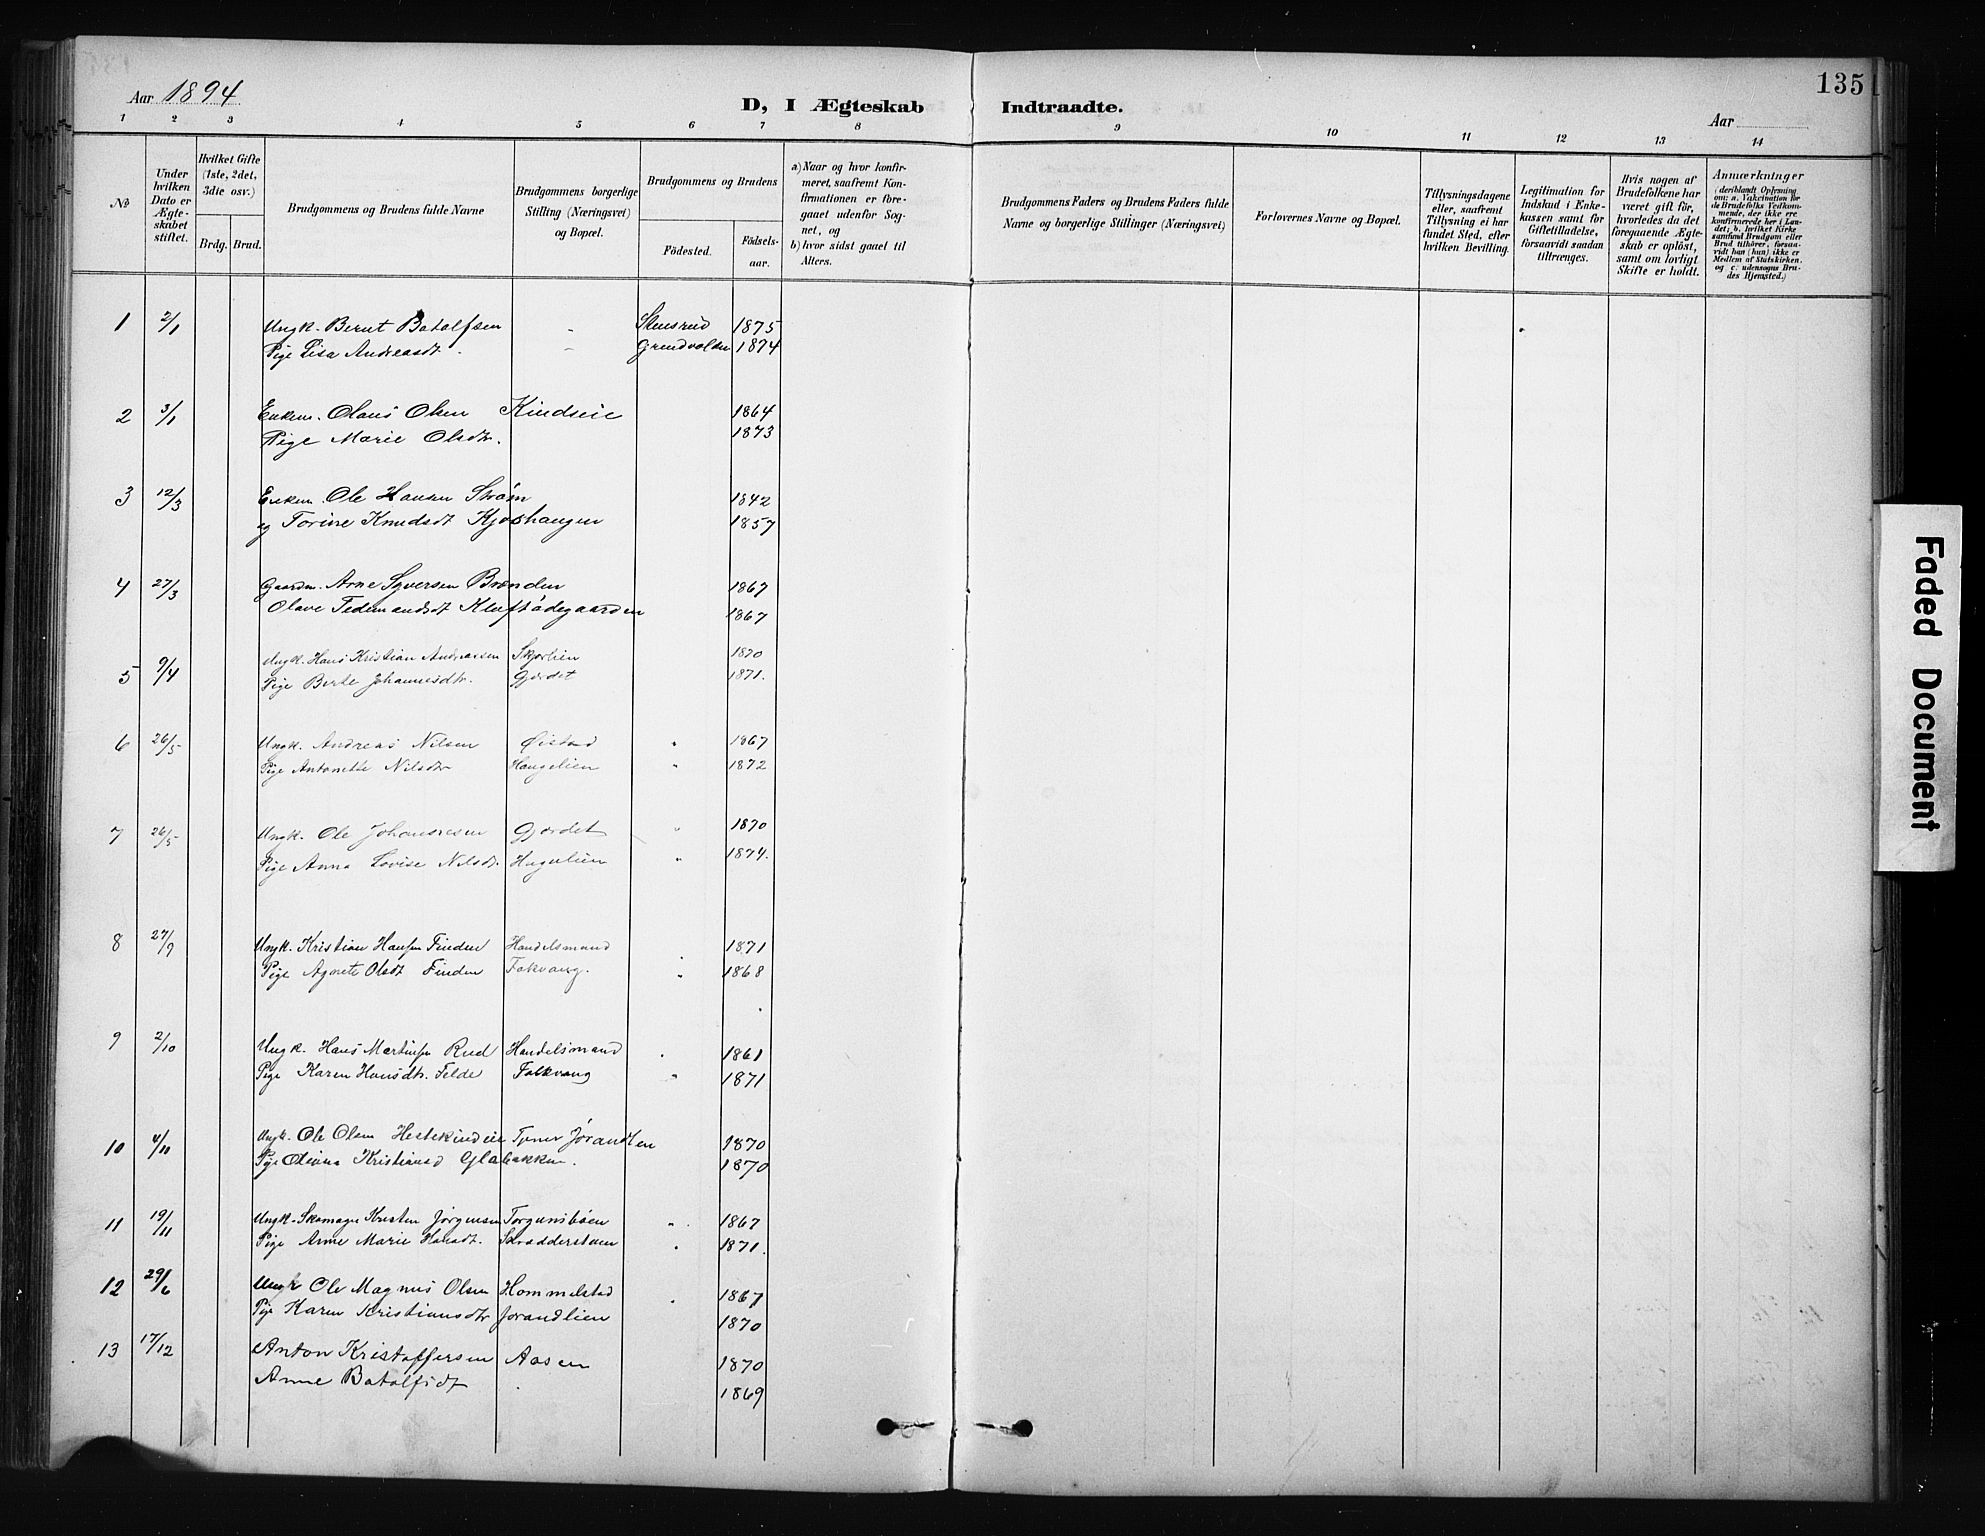 135
Aar 1894
D, I Ægteskab Indtraadte.
Aar
1 2 3 4 5 6 7 8 9 10 11 12 13 14
No
Under hvilken Dato er Ægteskabet stiftet.
Hvilket Gifte (1ste, 2det, 3die osv.)
Brdg. Brud.
Brudgommens og Brudens fulde Navne
Brudgommens borgerlige Stilling (Næringsvei) og Bopæl.
Brudgommens og Brudens
Fødested.
Fødselsaar.
a) Naar og hvor konfirmeret, saafremt Konfirmationen er foregaaet udenfor Sognet, og
b) hvor sidst gaaet til Alters.
Brudgommens Faders og Brudens Faders fulde Navne og borgerlige Stillinger (Næringsvei)
Forlovernes Navne og Bopæl.
Tillysningsdagene eller, saafremt Tillysning ei har fundet Sted, efter hvilken Bevilling.
Legitimation for Indskud i Enkekassen samt for Giftetilladelse, forsaavidt saadan tiltrænges.
Hvis nogen af Brudefolkene har været gift før, hvorledes da det foregaaende Ægteskab er opløst, samt om lovligt Skifte er holdt.
Anmærkninger
(deriblandt Oplysning om: a. Vakcination for de Brudefolks Vedkommende, der ikke ere konfirmerede her i Landet; b. hvilket Kirkesamfund Brudgom eller Brud tilhører, forsaavidt han (hun) ikke er Medlem af Statskirken, og c. udensogns Brudes Hjemsted.)
1 2/1 Ungk. Bernt Botolfsen - Stensrud 1875
Pige Lisa Andreasdt. - Grendvolden 1874
2 3/1 Enkem. Olaus Olsen Kindseie 1864
Pige Marie Olsdtr. 1873
3 12/3 Enkem. Ole Hansen Strøm 1842
og Torine Knudsdt Kjøshaugen 1857
4 27/3 Gaardm. Arne Syversen Brænden 1867
Olave Tedemandsdt Kluftødegaarden 1867
5 9/4 Ungk. Hans Kristian Andreassen Skjørlien 1870
Pige Berte Johannesdtr. Gjerdet 1871.
6 26/5 Ungk. Andreas Nilsen Øistad " 1867
Pige Antonette Nilsdtr Haugelien " 1872
7 26/5 Ungk. Ole Johannesen Gjerdet " 1870
Pige Anna Lovise Nilsdt. Hugulien " 1874.
8 27/9 Ungk. Kristian Hansen Finden Handelsmand 1871
Pige Agnete Olsdt Finden Folkvang. " 1868
9 2/10 Ungk. Hans Martinsen Rud Handelsmand 1861
Pige Karen Hansdtr. Felde Folkvang " 1871
10 4/10 Ungk. Ole Olsen Hestekindeie Tjener Jørandlien 1870
Pige Olivia Kristiansd Glabakken. 1870
11 19/11 Ungk. Skomager Kristen Jørgensen Torgunsbøen " 1867
Pige Anne Marie Hansdt. Skrædderstuen " 1871.
12 29/6 Ungk Ole Magnus Olsen Hommelstad " 1867
Pige Karen Kristiansdtr Jørandlien 1870
13 17/12 Anton Kristoffersen Aasen 1870
Anne Botolfsdt 1869
Faded Document